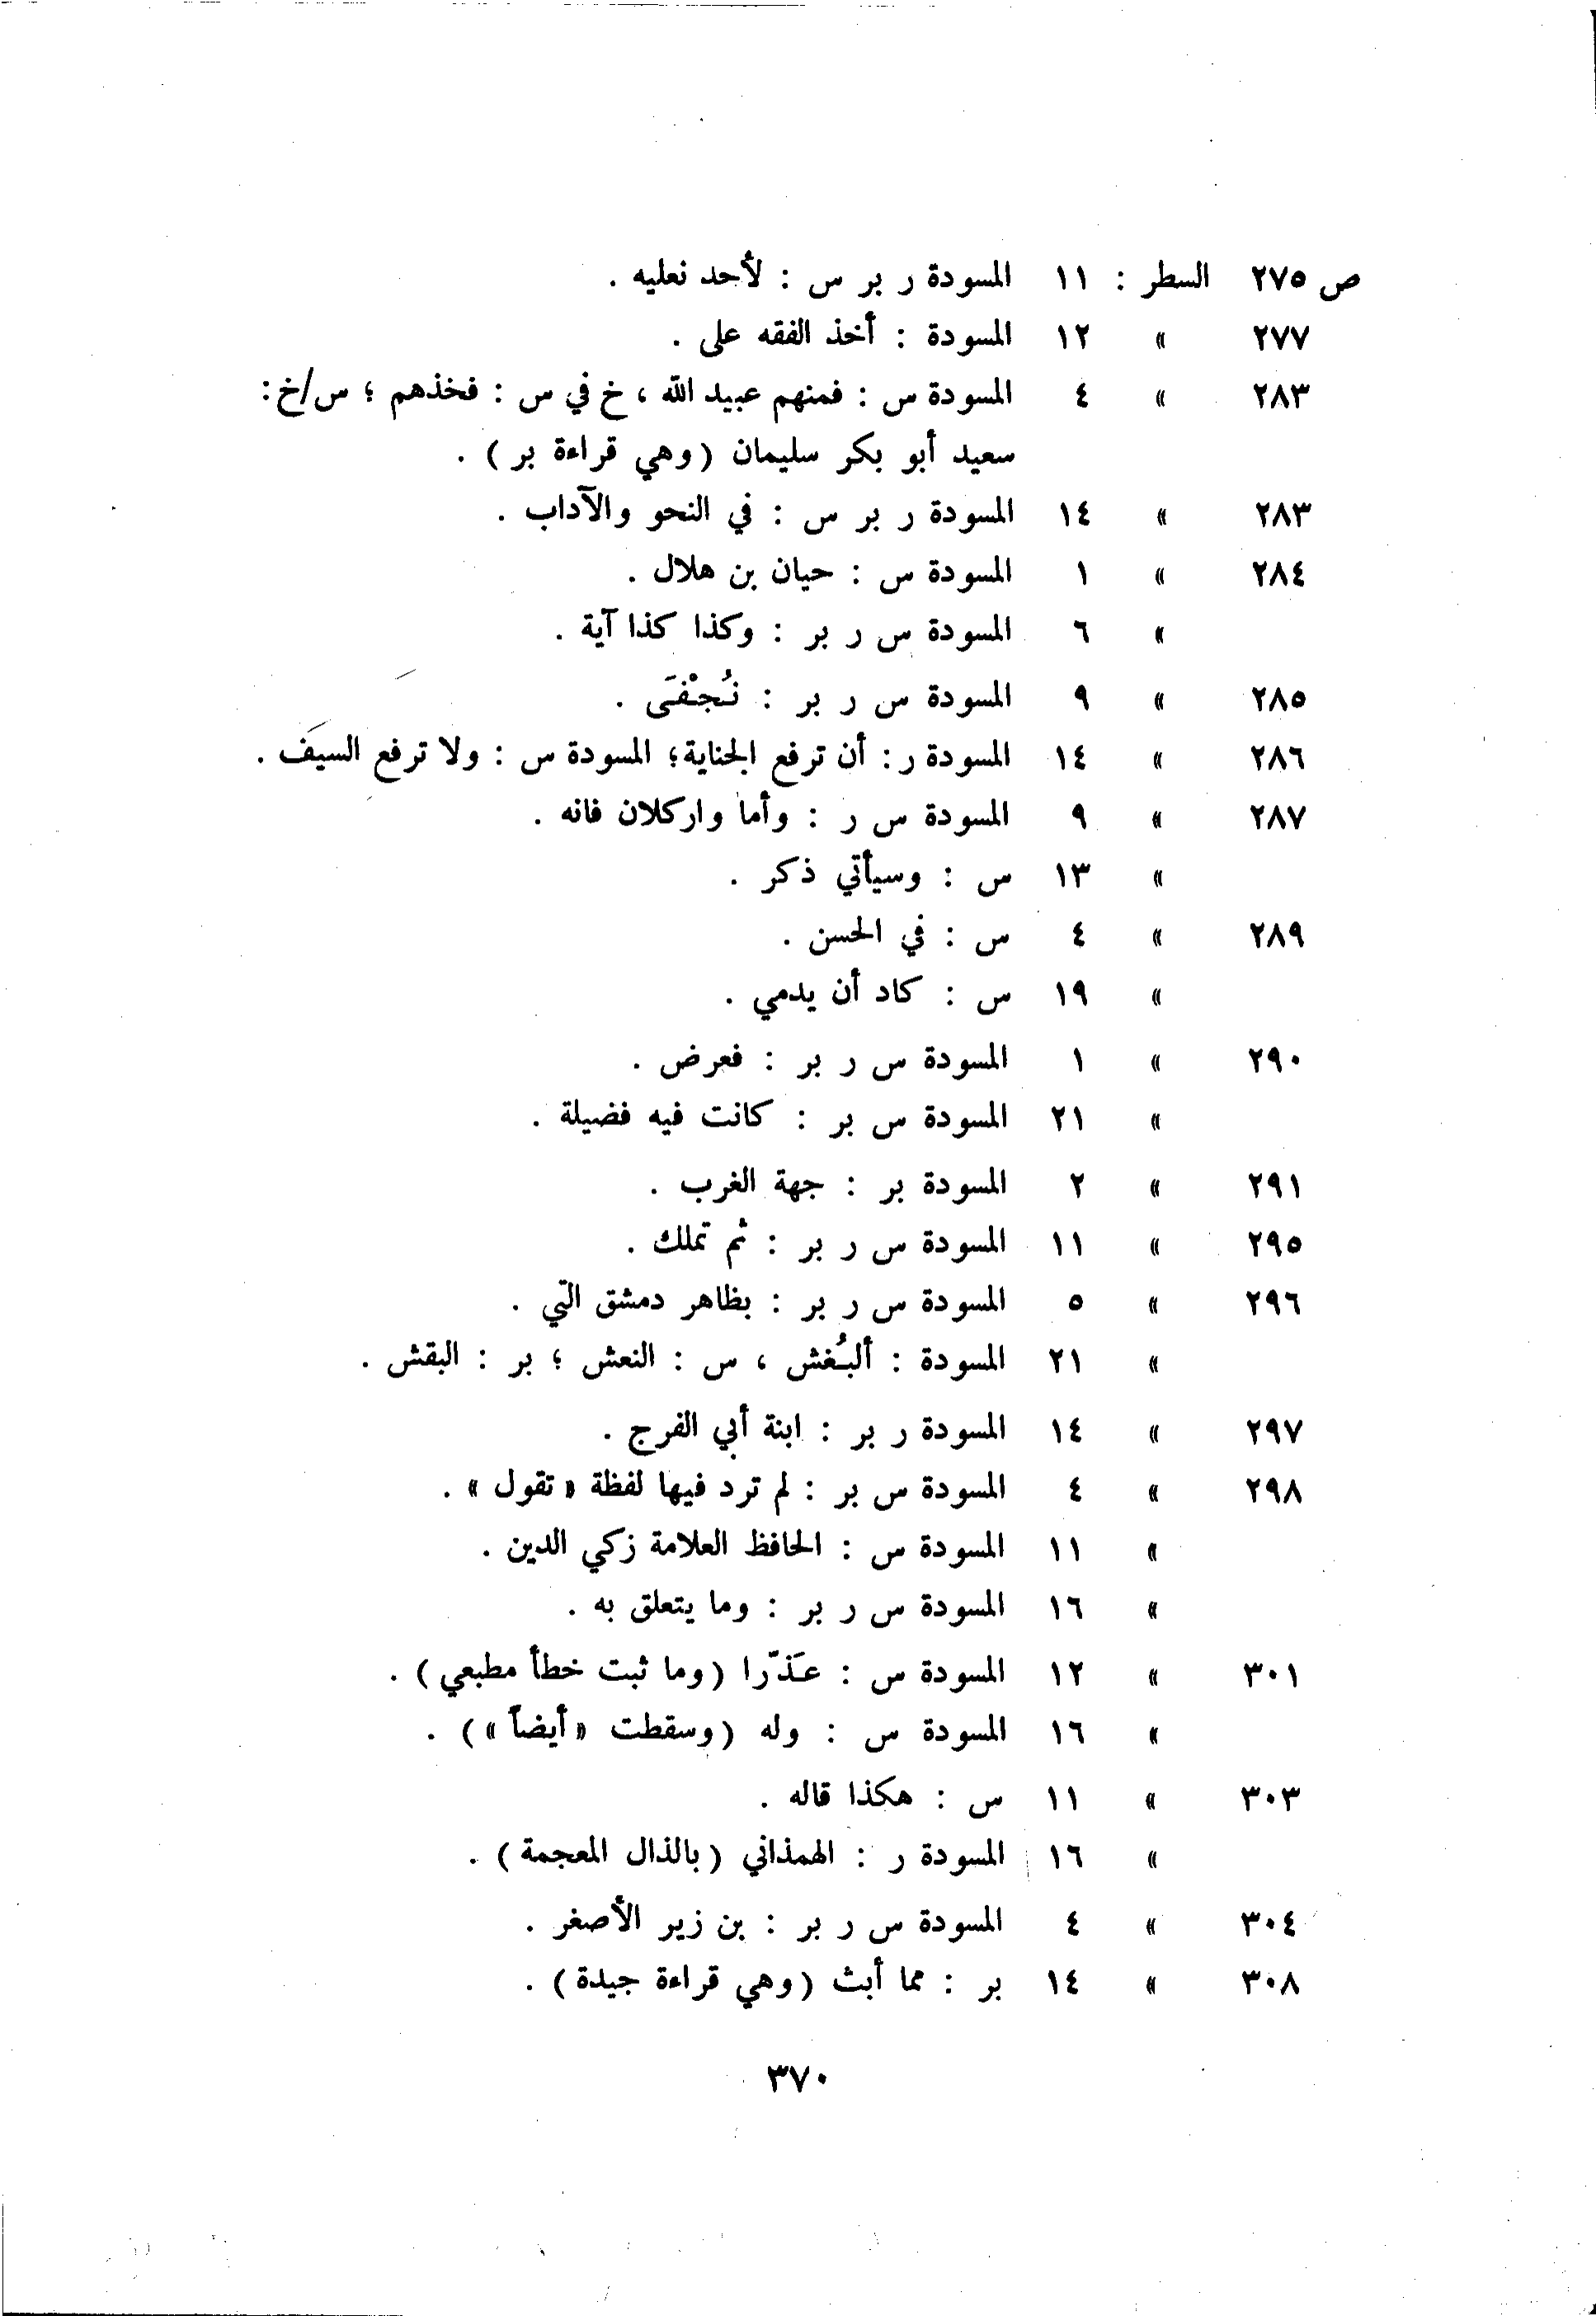 ص ٢٧٥ السطر : ١١ المسودة ر بر س : لأحد نعليه .
٢٧٧ » ١٢ المسودة : أخذ الفقه على .
٢٨٣ » ٤ المسودة س : فمنهم عبيد الله ، خ في س : فخذهم ؛ س/خ :
سعيد أبو بكر سليمان (وهي قراءة بر) .
٢٨٣ » ١٤ المسودة ر بر س : في النحو والآداب .
٢٨٤ » ١ المسودة س : حيان بن هلال .
» ٦ المسودة س ر بر : وكذا كذا آية .
٢٨٥ » ٩ المسودة س ر بر : نُجْفَى .
٢٨٦ » ١٤ المسودة ر : أن ترفع الجناية؛ المسودة س : ولا ترفع السيَف .
٢٨٧ » ٩ المسودة س ر : وأما واركلان فانه .
» ١٣ س : وسيأتي ذكر .
٢٨٩ » ٤ س : في الحسن .
» ١٩ س : كاد أن يدمي .
٢٩٠ » ١ المسودة س ر بر : فعرض .
» ٢١ المسودة س بر : كانت فيه فضيلة .
٢٩١ » ٢ المسودة بر : جهة الغرب .
٢٩٥ » ١١ المسودة س ر بر : ثم تملك .
٢٩٦ » ٥ المسودة س ر بر : بظاهر دمشق التي .
» ٢١ المسودة : ألبُغش ، س : النعش ؛ بر : البقش .
٢٩٧ » ١٤ المسودة ر بر : ابنة أبي الفرج .
٢٩٨ » ٤ المسودة س بر : لم ترد فيها لفظة « تقول » .
» ١١ المسودة س : الحافظ العلامة زكي الدين .
» ١٦ المسودة س ر بر : وما يتعلق به .
٣٠١ » ١٢ المسودة س : عَذّرا (وما ثبت خطأ مطبعي) .
» ١٦ المسودة س : وله (وسقطت « أيضاً ») .
٣٠٣ » ١١ س : هكذا قاله .
» ١٦ المسودة ر : الهمذاني (بالذال المعجمة) .
٣٠٤ » ٤ المسودة س ر بر : بن زير الأصغر .
٣٠٨ » ١٤ بر : مما أبث (وهي قراءة جيدة) .
٣٧٠